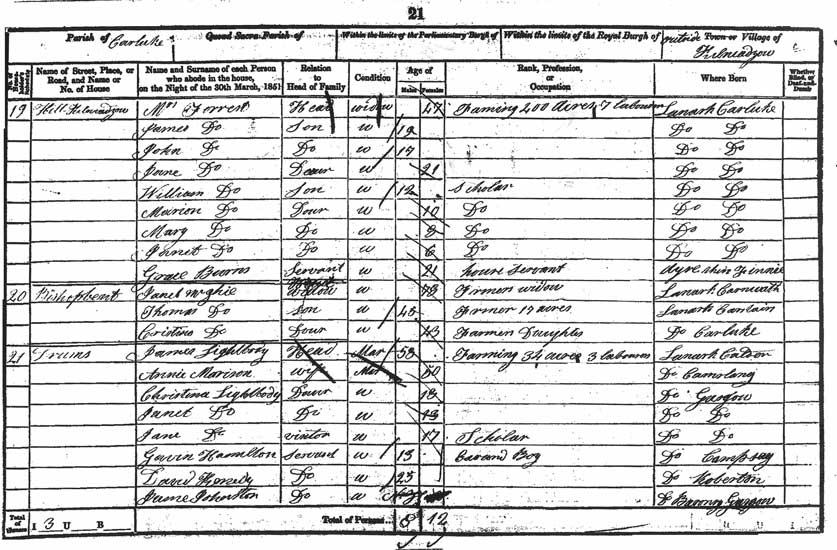 21
Parish of Carluke Quoad Sacra Parish of Within the limits of the Parliamentary Burgh of Within the limits of the Royal Burgh of outside Town or Village of Kilncadzow
Name of Street, Place, or Road, and Name or No. of House Name and Surname of each Person who abode in the house, on the Night of the 30th March, 1851 Relation to Head of Family Condition Age of Males Females Rank, Profession, or Occupation Where Born Whether Blind, or Deaf-and-Dumb
19 Hill Kilncadzow Mrs Forrest Head widow 47 Farming 200 acres 7 labourers Lanark Carluke
James Do Son u 19 Do Do
John Do Do u 17 Do Do
Jane Do Daur u 21 Do Do
William Do Son u 12 Scholar Do Do
Marion Do Daur u 10 Do Do Do
Mary Do Do u 8 Do Do Do
Janet Do Do u 6 Do Do Do
Grace Burns Servant u 21 house servant
20 Janet McGhie Widow 78 Lanark Carnwath
Thomas Do Son u 45 Farmer 17 acres Lanark
Christina Do Daur u 43 Farmers Daughter Do Carluke
21 Drums James Lightbody Head Mar 58 Farming 34 acres 3 labourers Lanark
Annie Marison wife Mar 50 Do
Christina Lightbody Daur u 18 Do Glasgow
Janet Do Do u 13 Do Do
Jane Do visitor u 17 Scholar Do Do
Gavin Hamilton Servant u 13 Do
David Do u 23 Do Roberton
Johnston Do u Do Barony Glasgow
Total of Houses I 3 U B Total of Persons... 8 12